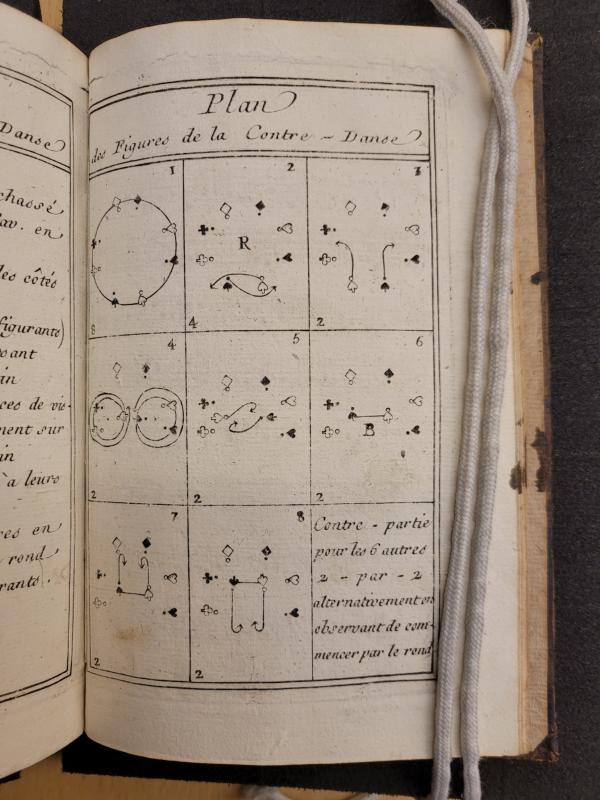 Danse
chassé
av. en
les côtés
figurants)
in
ces de vis-
ment sur
in
à leurs
res en
rond
rants.
Plan
des Figures de la Contre - Danse
1
8
2
R
4
3
2
4
2
5
2
6
B
2
7
2
8
2
Contre - partie
pour les 6 autres
2 - par - 2
alternativement en
observant de com-
mencer par le rond